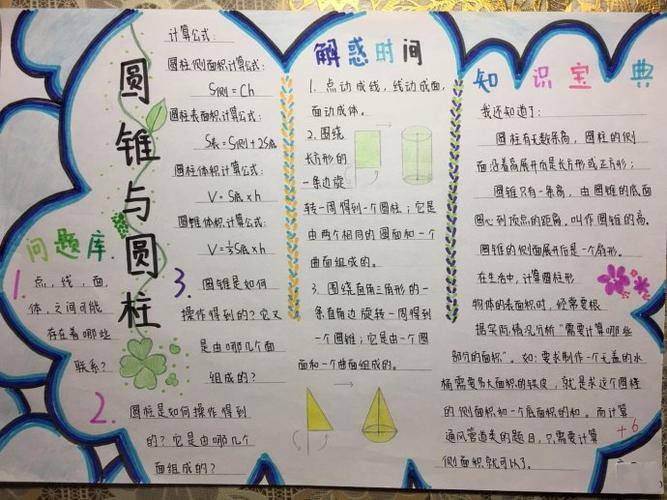 圆锥与圆柱
问题库
1. 点，线，面，
体，之间可能
存在着哪些
联系？
2. 圆柱是如何操作得到
的？它是由哪几个
面组成的？
计算公式：
圆柱侧面积计算公式：
S侧=Ch
圆柱表面积计算公式：
S表=S侧+2S底
圆柱体积计算公式：
V=S底×h
圆锥体积计算公式：
V=⅓S底×h
3. 圆锥是如何
操作得到的？它又
是由哪几个面
组成的？
解惑时间
1. 点动成线，线动成面，
面动成体。
2. 围绕
长方形的
一条边旋
转一周得到一个圆柱；它是
由两个相同的圆面和一个
曲面组成的。
3. 围绕直角三角形的一
条直角边旋转一周得到
一个圆锥；它是由一个圆
面和一个曲面组成的。
知识宝典
我还知道了：
圆柱有无数条高，圆柱的侧
面沿着高展开后是长方形或正方形；
圆锥只有一条高，由圆锥的底面
圆心到顶点的距离，叫作圆锥的高。
圆锥的侧面展开后是一个扇形。
在生活中，计算圆柱形
物体的表面积时，经常要根
据实际情况分析“需要计算哪些
部分的面积”。如：要求制作一个无盖的水
桶需要多大面积的铁皮，就是求这个圆柱
的侧面积和一个底面积的和。而计算
通风管道类的题目，只需要计算
侧面积就可以了。
+6